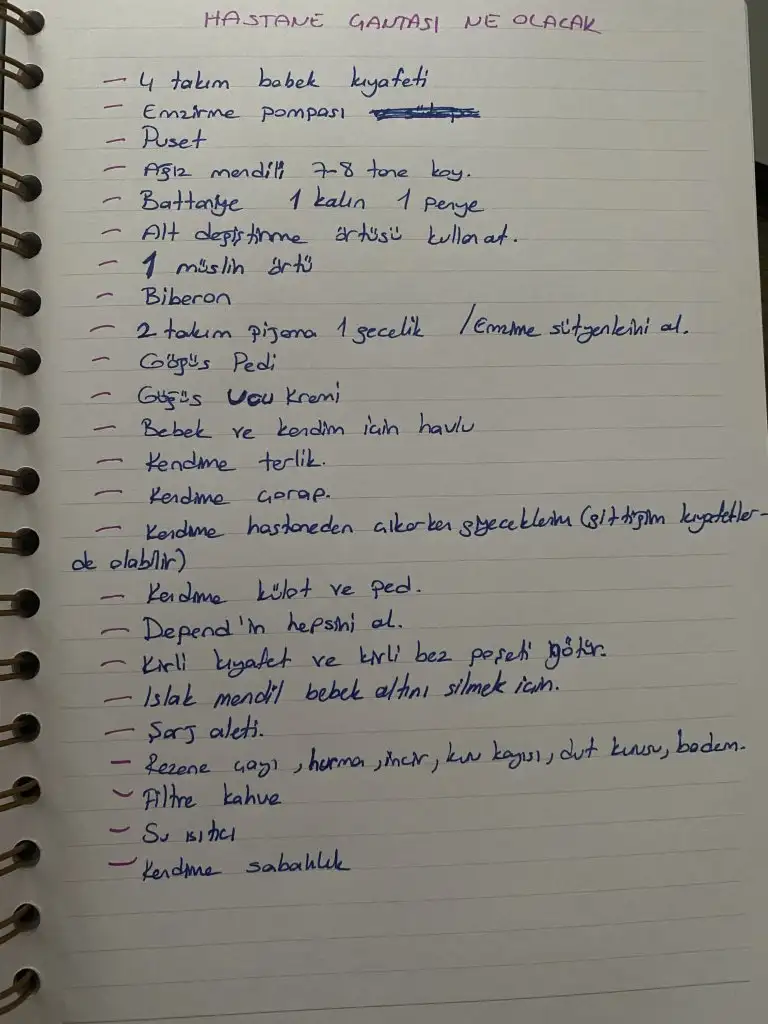 HASTANE ÇANTASI NE OLACAK
— 4 takım bebek kıyafeti
— Emzirme pompası
— Puset
— Ağız mendili 7-8 tane koy.
— Battaniye 1 kalın 1 penye
— Alt değiştirme örtüsü kullan at.
— 1 müslin örtü
— Biberon
— 2 takım pijama 1 gecelik / Emzirme sütyenlerini al.
— Göğüs Pedi
— Göğüs Ucu Kremi
— Bebek ve kendim için havlu
— Kendime terlik.
— Kendime çorap.
— Kendime hastaneden çıkarken giyeceklerim (gittiğim kıyafetler-
de olabilir)
— Kendime külot ve ped.
— Depend'in hepsini al.
— Kirli kıyafet ve kirli bez poşeti götür.
— Islak mendil bebek altını silmek için.
— Şarj aleti.
— Rezene çayı, hurma, incir, kuru kayısı, dut kurusu, badem.
— Filtre kahve
— Su ısıtıcı
— Kendime sabahlık